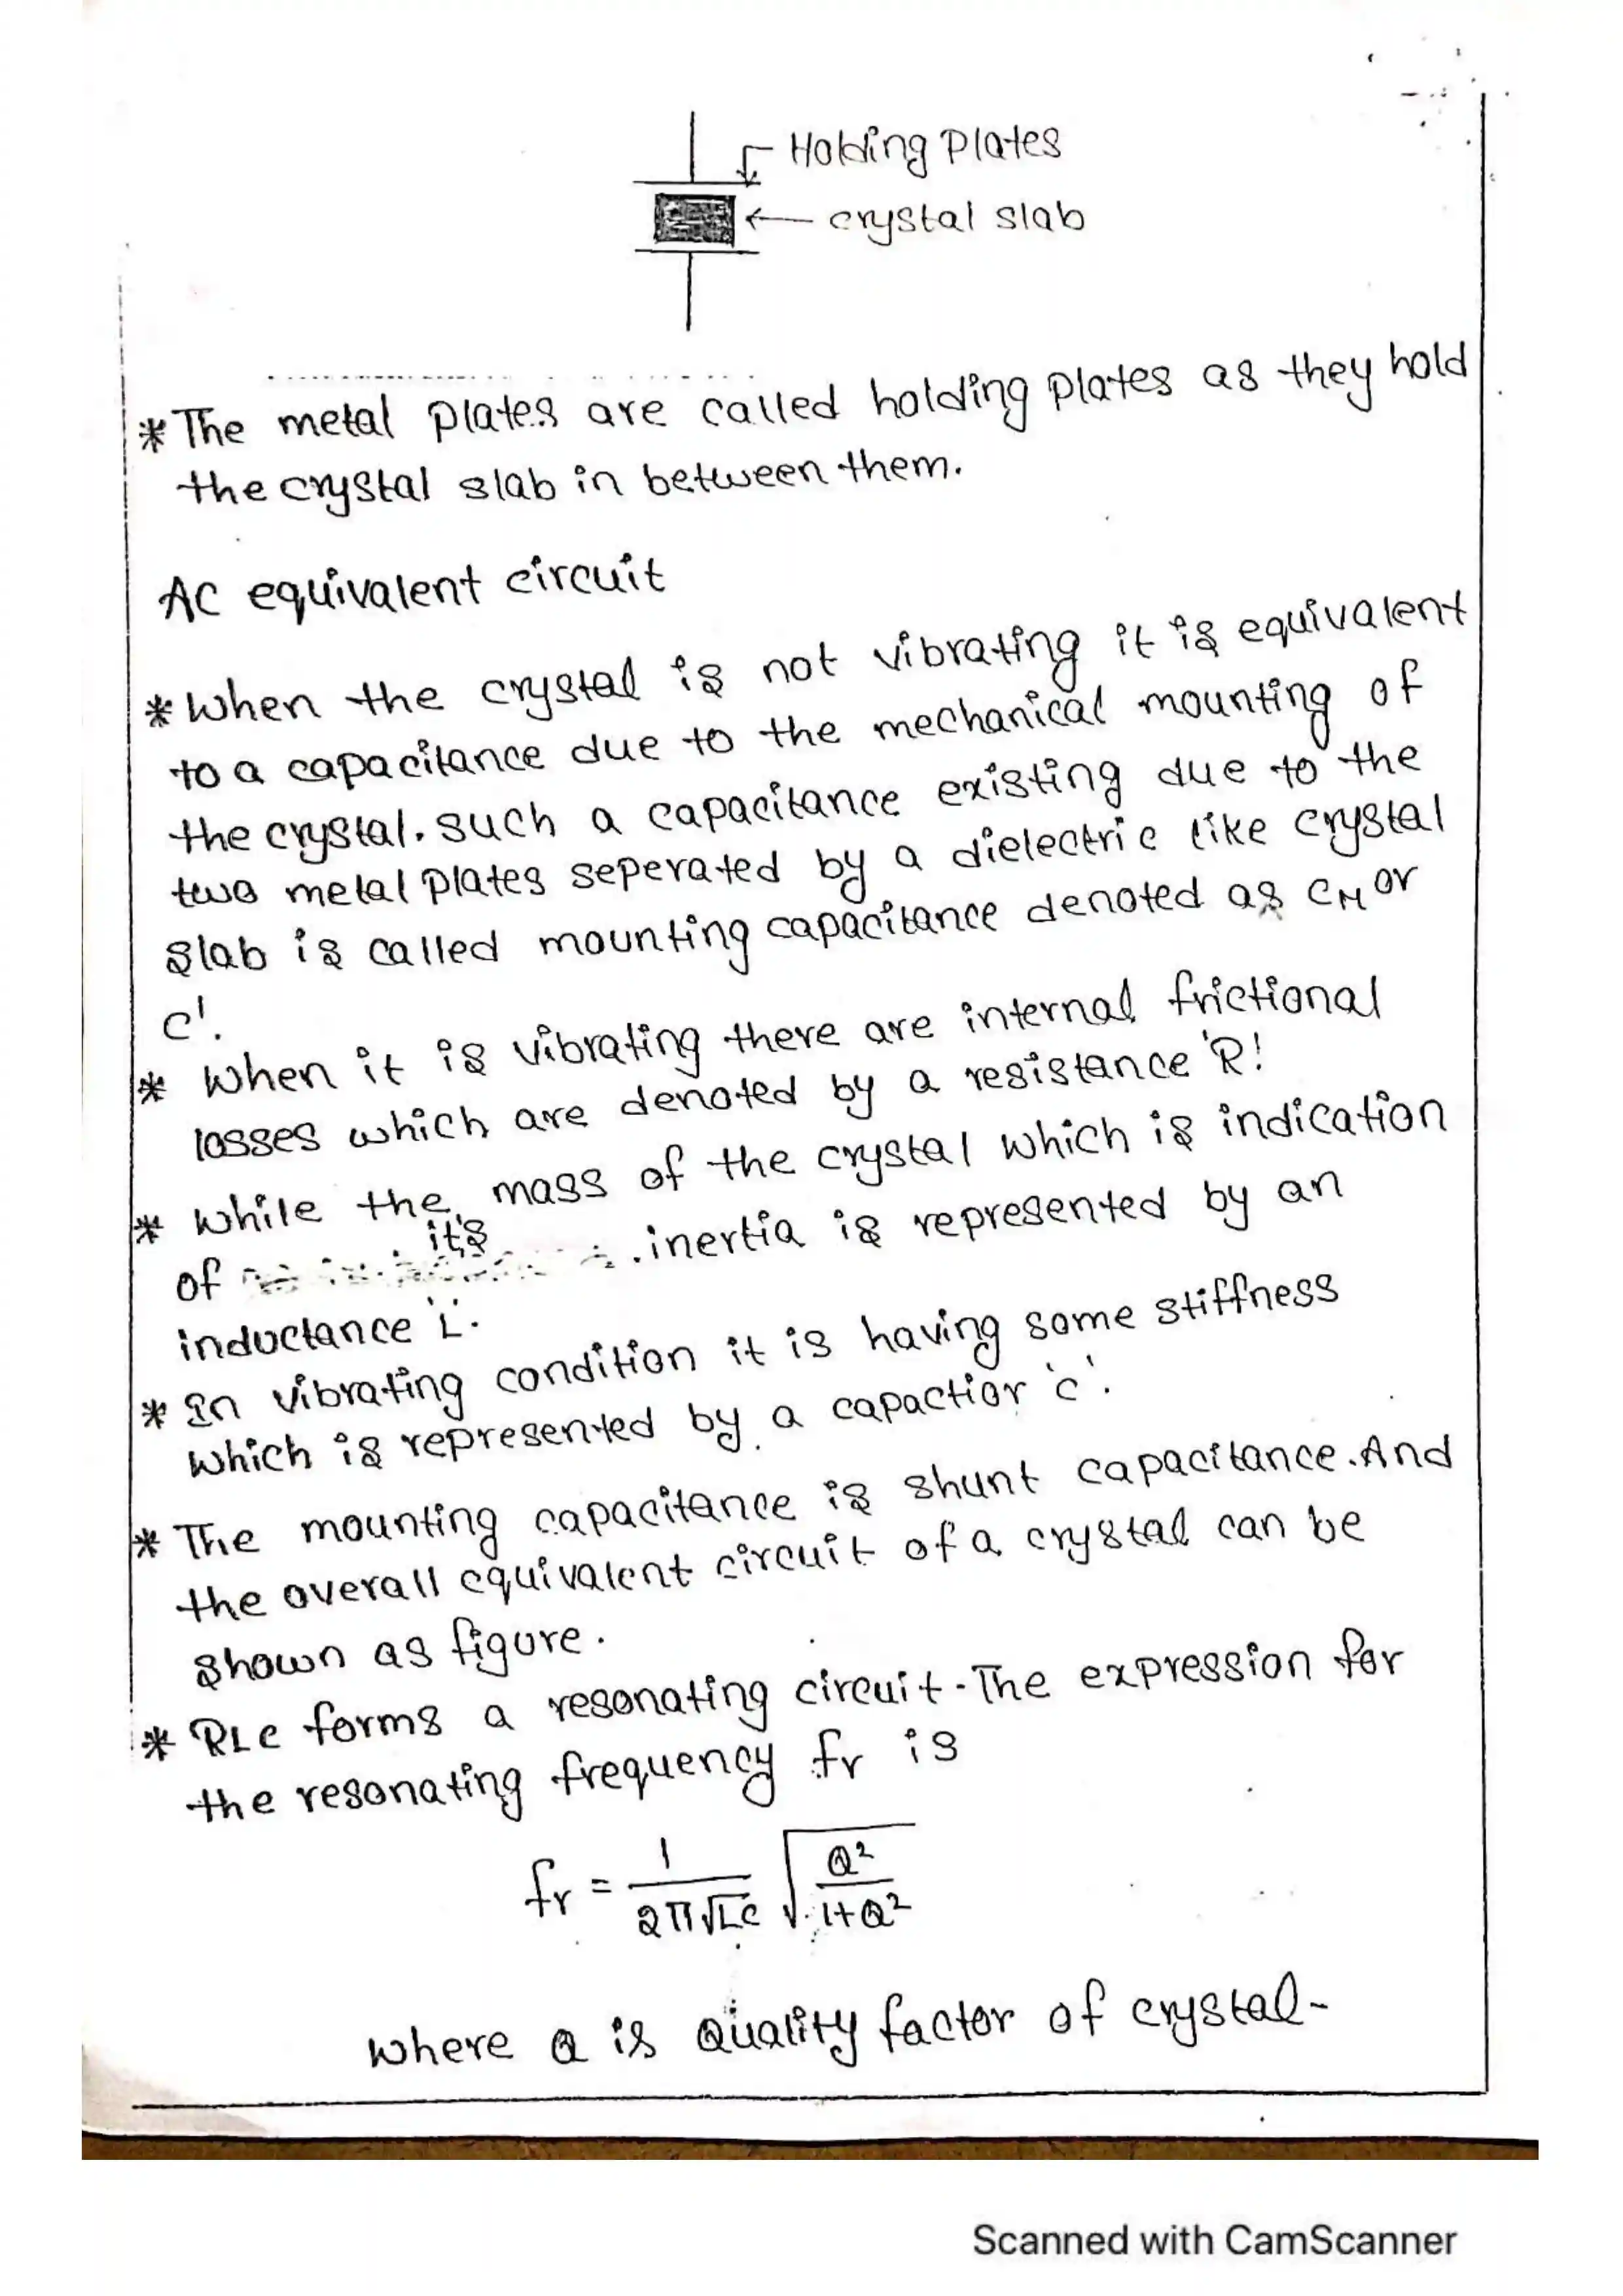 Holding Plates
crystal slab
* The metal plates are called holding plates as they hold
the crystal slab in between them.
AC equivalent circuit
* When the crystal is not vibrating it is equivalent
to a capacitance due to the mechanical mounting of
the crystal. such a capacitance existing due to the
two metal plates seperated by a dielectric like crystal
slab is called mounting capacitance denoted as CM or
C'.
* When it is vibrating there are internal frictional
losses which are denoted by a resistance 'R'.
* While the mass of the crystal which is indication
of it's inertia is represented by an
inductance 'L'.
* In vibrating condition it is having some stiffness
which is represented by a capactior 'c'.
* The mounting capacitance is shunt capacitance. And
the overall equivalent circuit of a crystal can be
shown as figure.
* RLC forms a resonating circuit. The expression for
the resonating frequency fr is
fr = 1 / 2π√LC √ Q² / 1+Q²
where Q is Quality factor of crystal-
Scanned with CamScanner